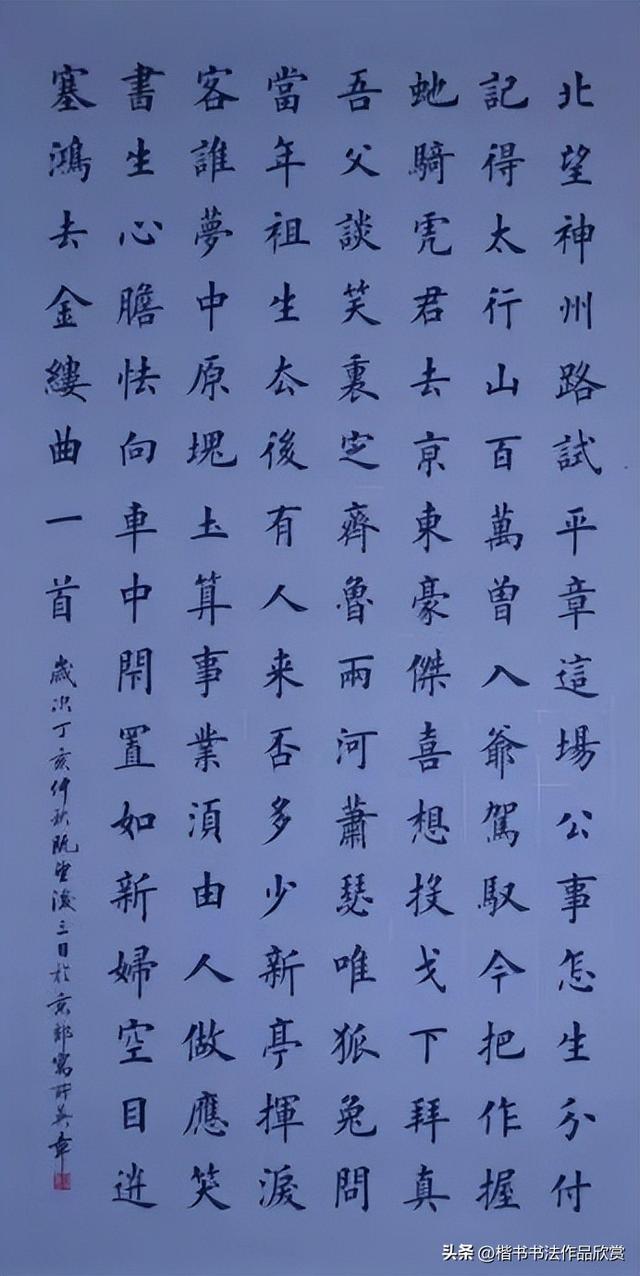 北望神州路試平章這場公事怎生分付
記得太行山百萬曾入爺駕馭今把作握
虵騎虎君去京東豪傑喜想投戈下拜真
吾父談笑裏定齊魯兩河蕭瑟唯狐兔問
當年祖生去後有人来否多少新亭揮淚
客誰夢中原塊土算事業須由人做應笑
書生心膽怯向車中閉置如新婦空目送
塞鴻去金縷曲一首
歲次丁亥仲秋既望後三日於京
头条 @楷书书法作品欣赏